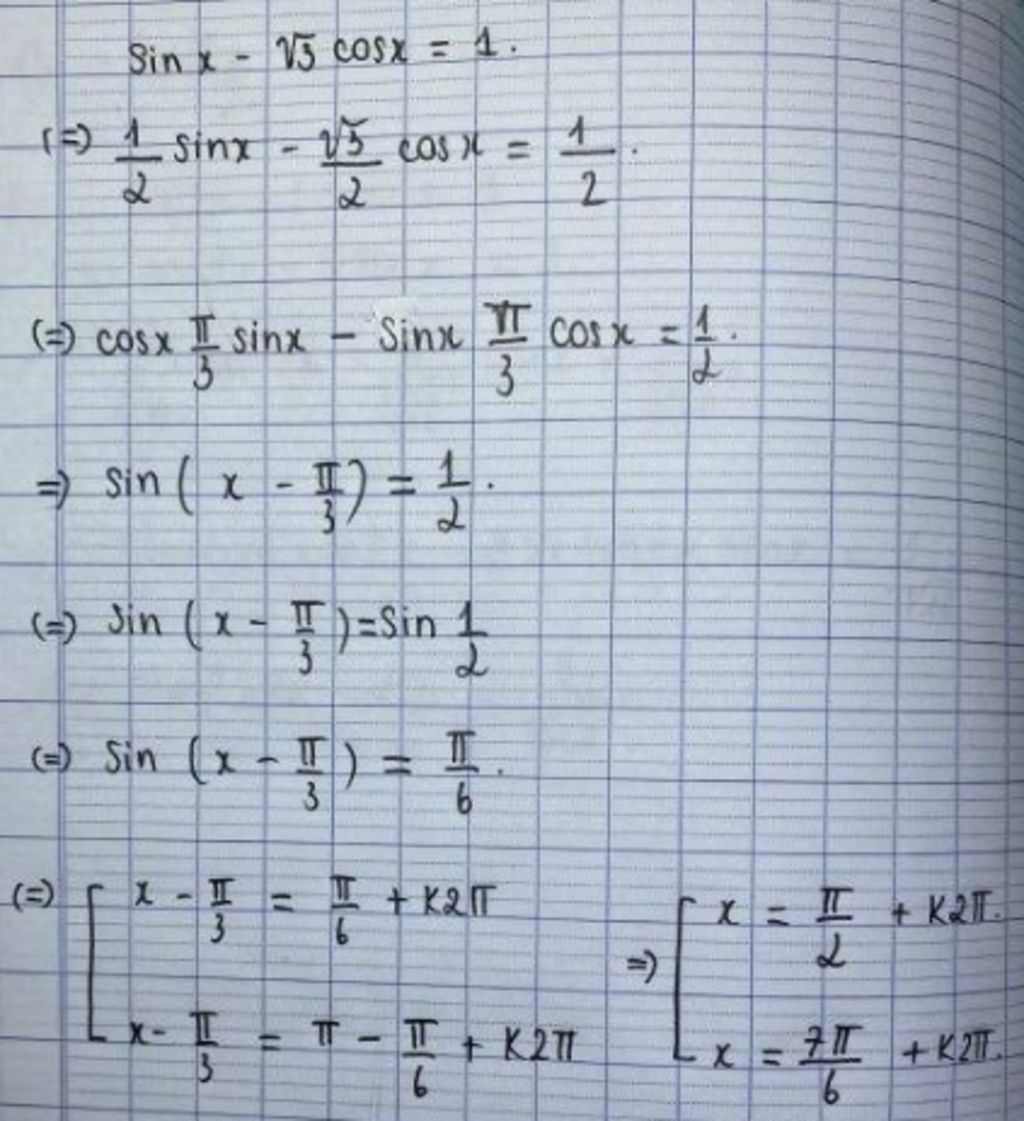 Sin x - √3 cosx = 1.
(=) 1/2 sinx - √3/2 cosx = 1/2.
(=) cosx π/3 sinx - Sinx π/3 cosx = 1/2.
=) sin( x - π/3) = 1/2.
(=) sin (x - π/3)=Sin 1/2
(=) Sin (x - π/3) = π/6.
(=) [ x - π/3 = π/6 + K2π =) [ x = π/2 + K2π.
x- π/3 = π - π/6 + K2π x = 7π/6 + K2π.